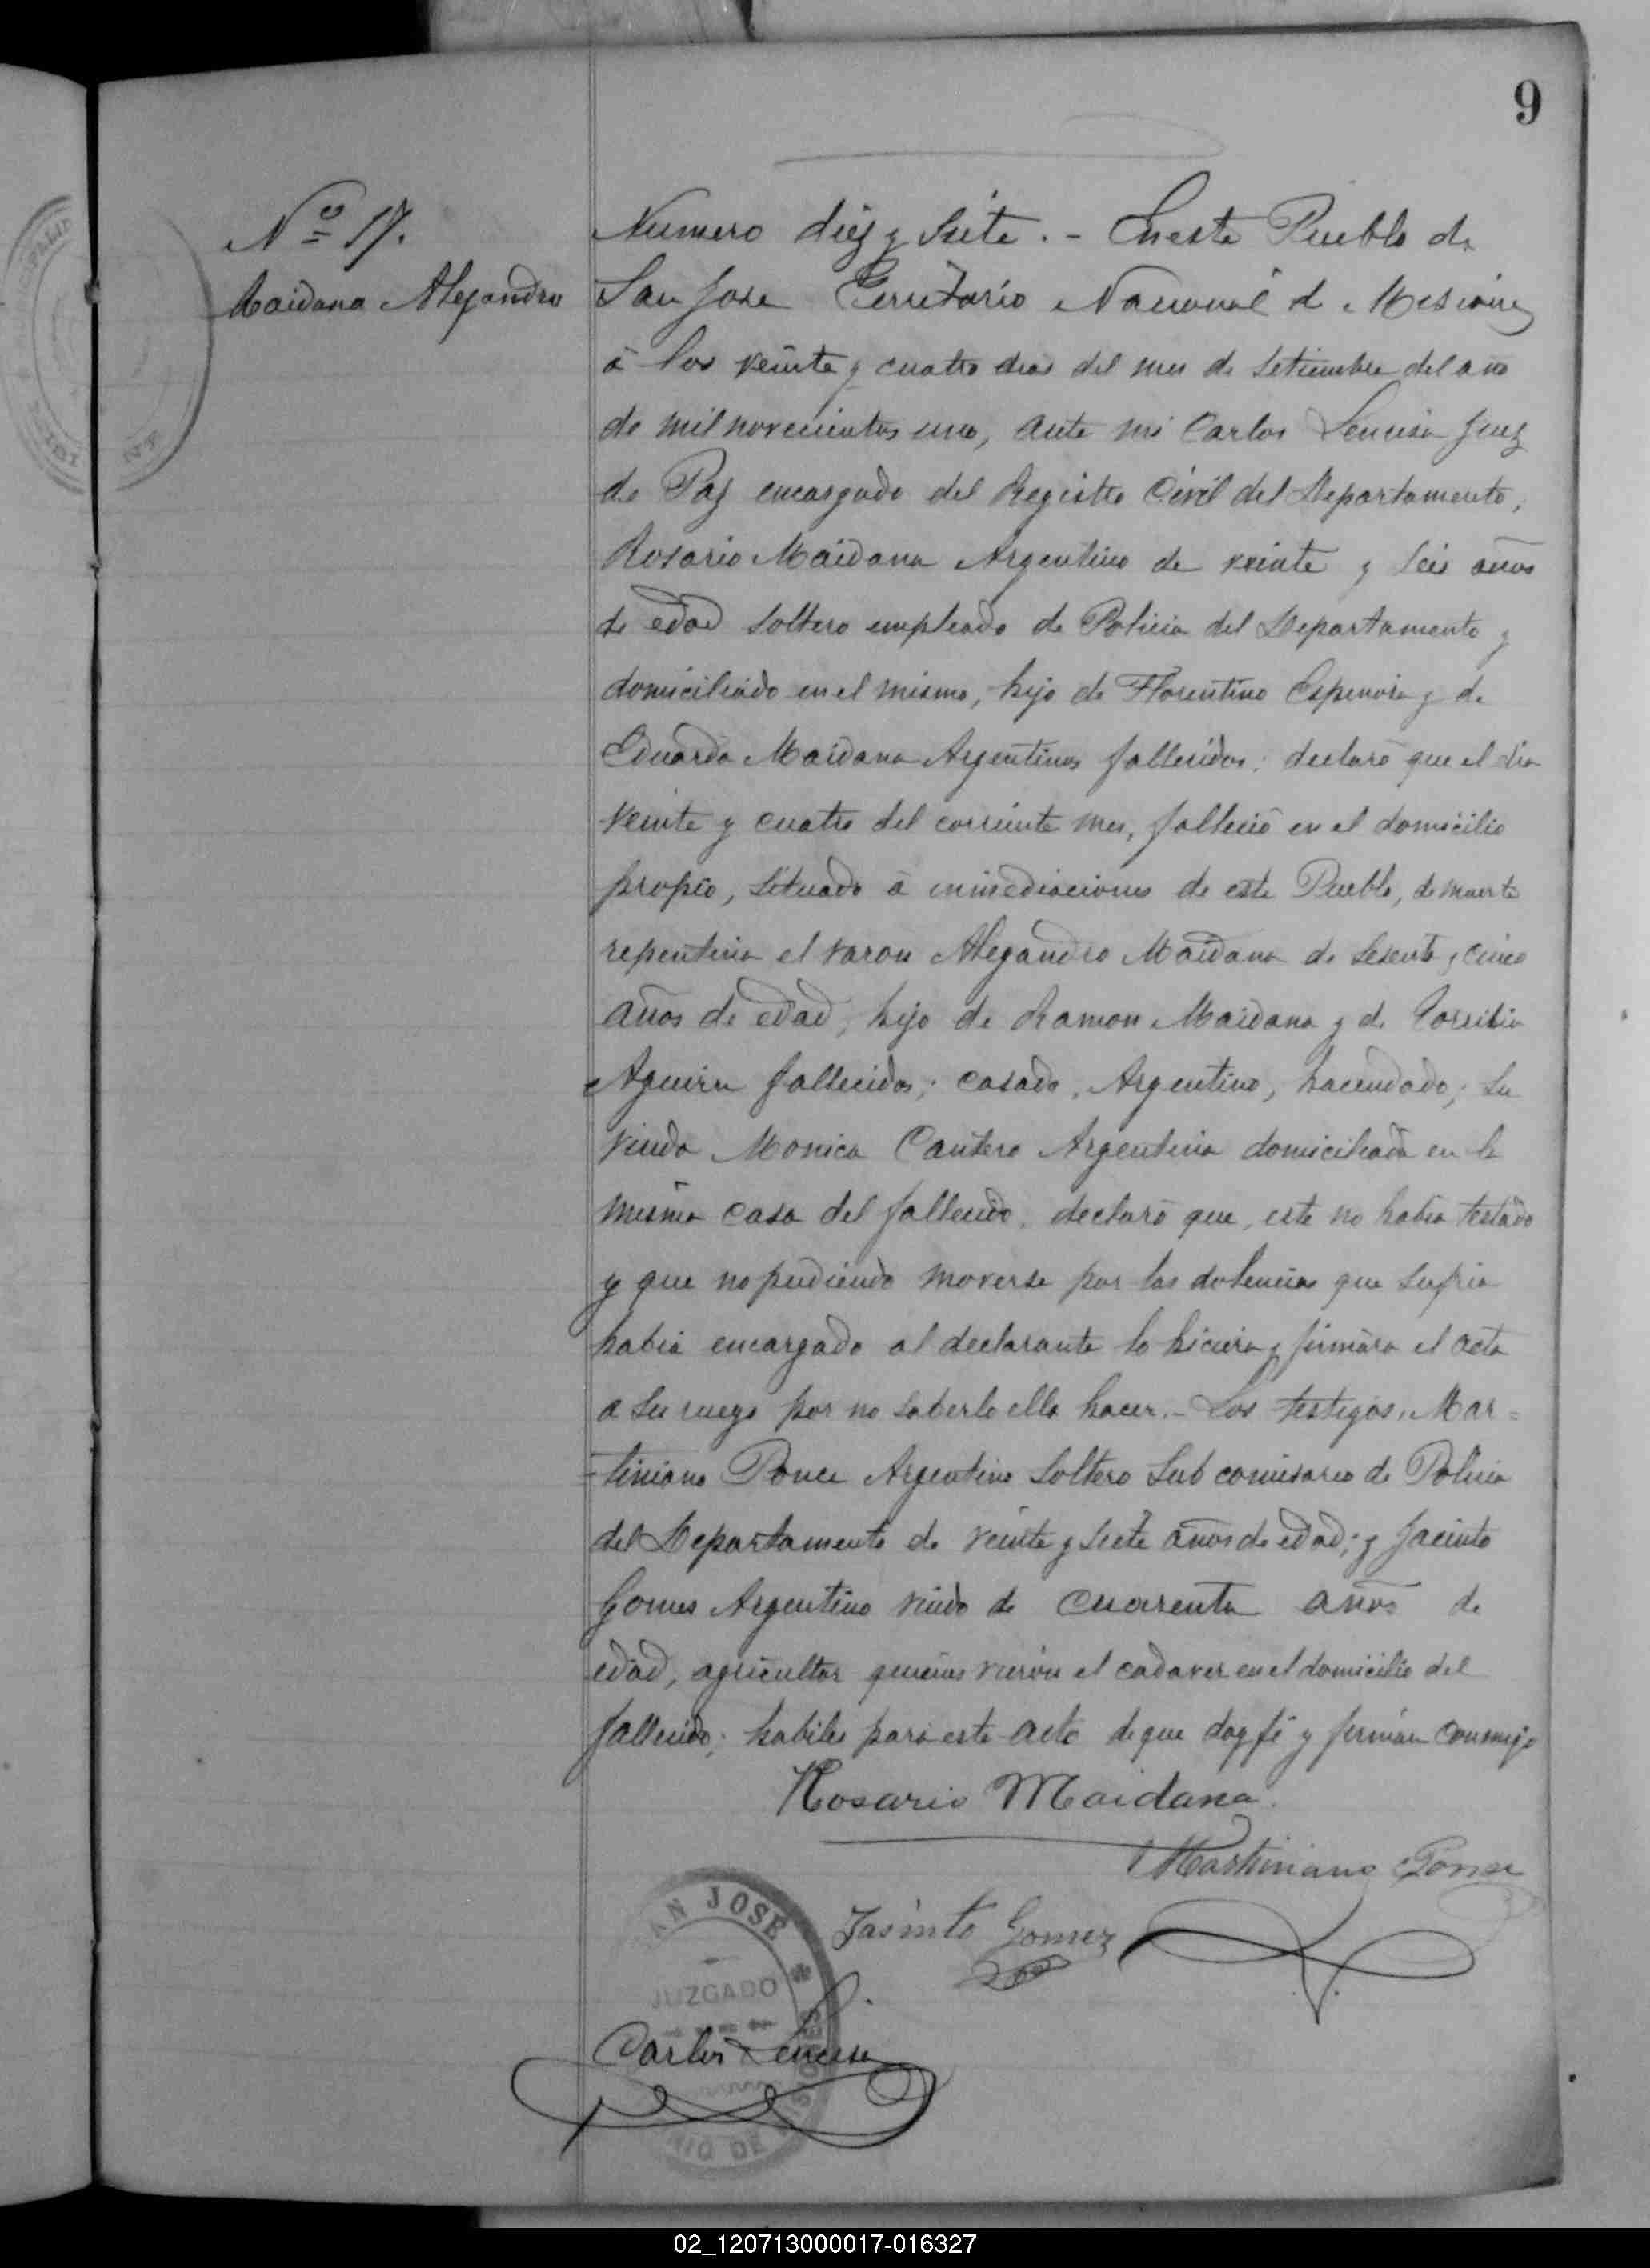 9
Nº 17.
Maidana Alejandro
Numero diez y siete. - En este Pueblo de
San Jose Territorio Nacional de Misiones
á los veinte y cuatro dias del mes de Setiembre del año
de mil novecientos uno, ante mi Carlos Juez
de Paz encargado del Registro Civil del Departamento,
Rosario Maidana Argentino de veinte y seis años
de edad soltero empleado de Policia del Departamento y
domiciliado en el mismo, hijo de Florentino y de
Eduarda Maidana Argentinos fallecidos; declaró que el dia
veinte y cuatro del corriente mes, falleció en el domicilio
propio, situado á inmediaciones de este Pueblo, de muerte
repentina el varon Alejandro Maidana de sesenta y cinco
años de edad, hijo de Ramon Maidana y de
Aguirre fallecidos; casado, Argentino, hacendado; su
viuda Monica Cantero Argentina domiciliada en la
misma casa del fallecido, declaró que, este no habia testado
y que no pudiendo moverse por las dolencias que sufria
habia encargado al declarante lo hiciera y firmara el acta
a su ruego por no saberlo ella hacer.- Los testigos, Mar=
=tiniano Ponce Argentino soltero Sub comisario de Policia
del Departamento de veinte y siete años de edad; y Jacinto
Gomes Argentino viudo de cuarenta años de
edad, agricultor quienes vieron el cadaver en el domicilio del
fallecido; habiles para este acto de que doy fé y firman conmigo
Rosario Maidana.
Martiniano Ponce
Jasinto Gomez
AN JOSÉ
JUZGADO
Carlos